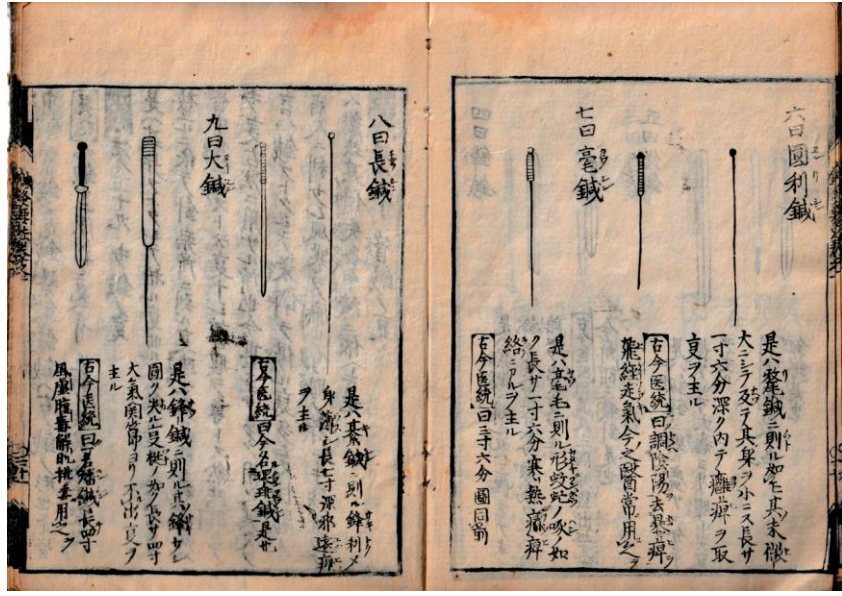 六曰圓利鍼
是ハ氂鍼ニ則ル如ク其末微
大ニシテ反テ其身ヲ小ニス長サ
一寸六分深ク内テ癰痺ヲ取
ヿヲ主ル
古今医統曰調陰陽去暴痺
飛經走氣今之醫常用之
七曰毫鍼
是ハ毫毛ニ則ル形蚊虻ノ喙ノ如
ク長サ一寸六分寒熱痛痺
絡ニアルヲ主ル
古今医統曰三寸六分圖同前
八曰長鍼
是ハ綦鍼ニ則ル鋒利メ
身薄シ長七寸深邪遠痺
ヲ主ル
古今医統曰今名環跳鍼是也
九曰大鍼
是ハ鋒鍼ニ則ル
圓ク
長サ四寸
大氣関節ヨリ不出ヿヲ
主ル
古今医統曰
鍼長四寸
風虚腫毒解肌排毒用之